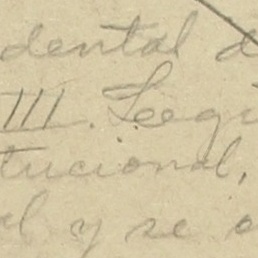 dental d
III. Legi
tucional,
al y se a